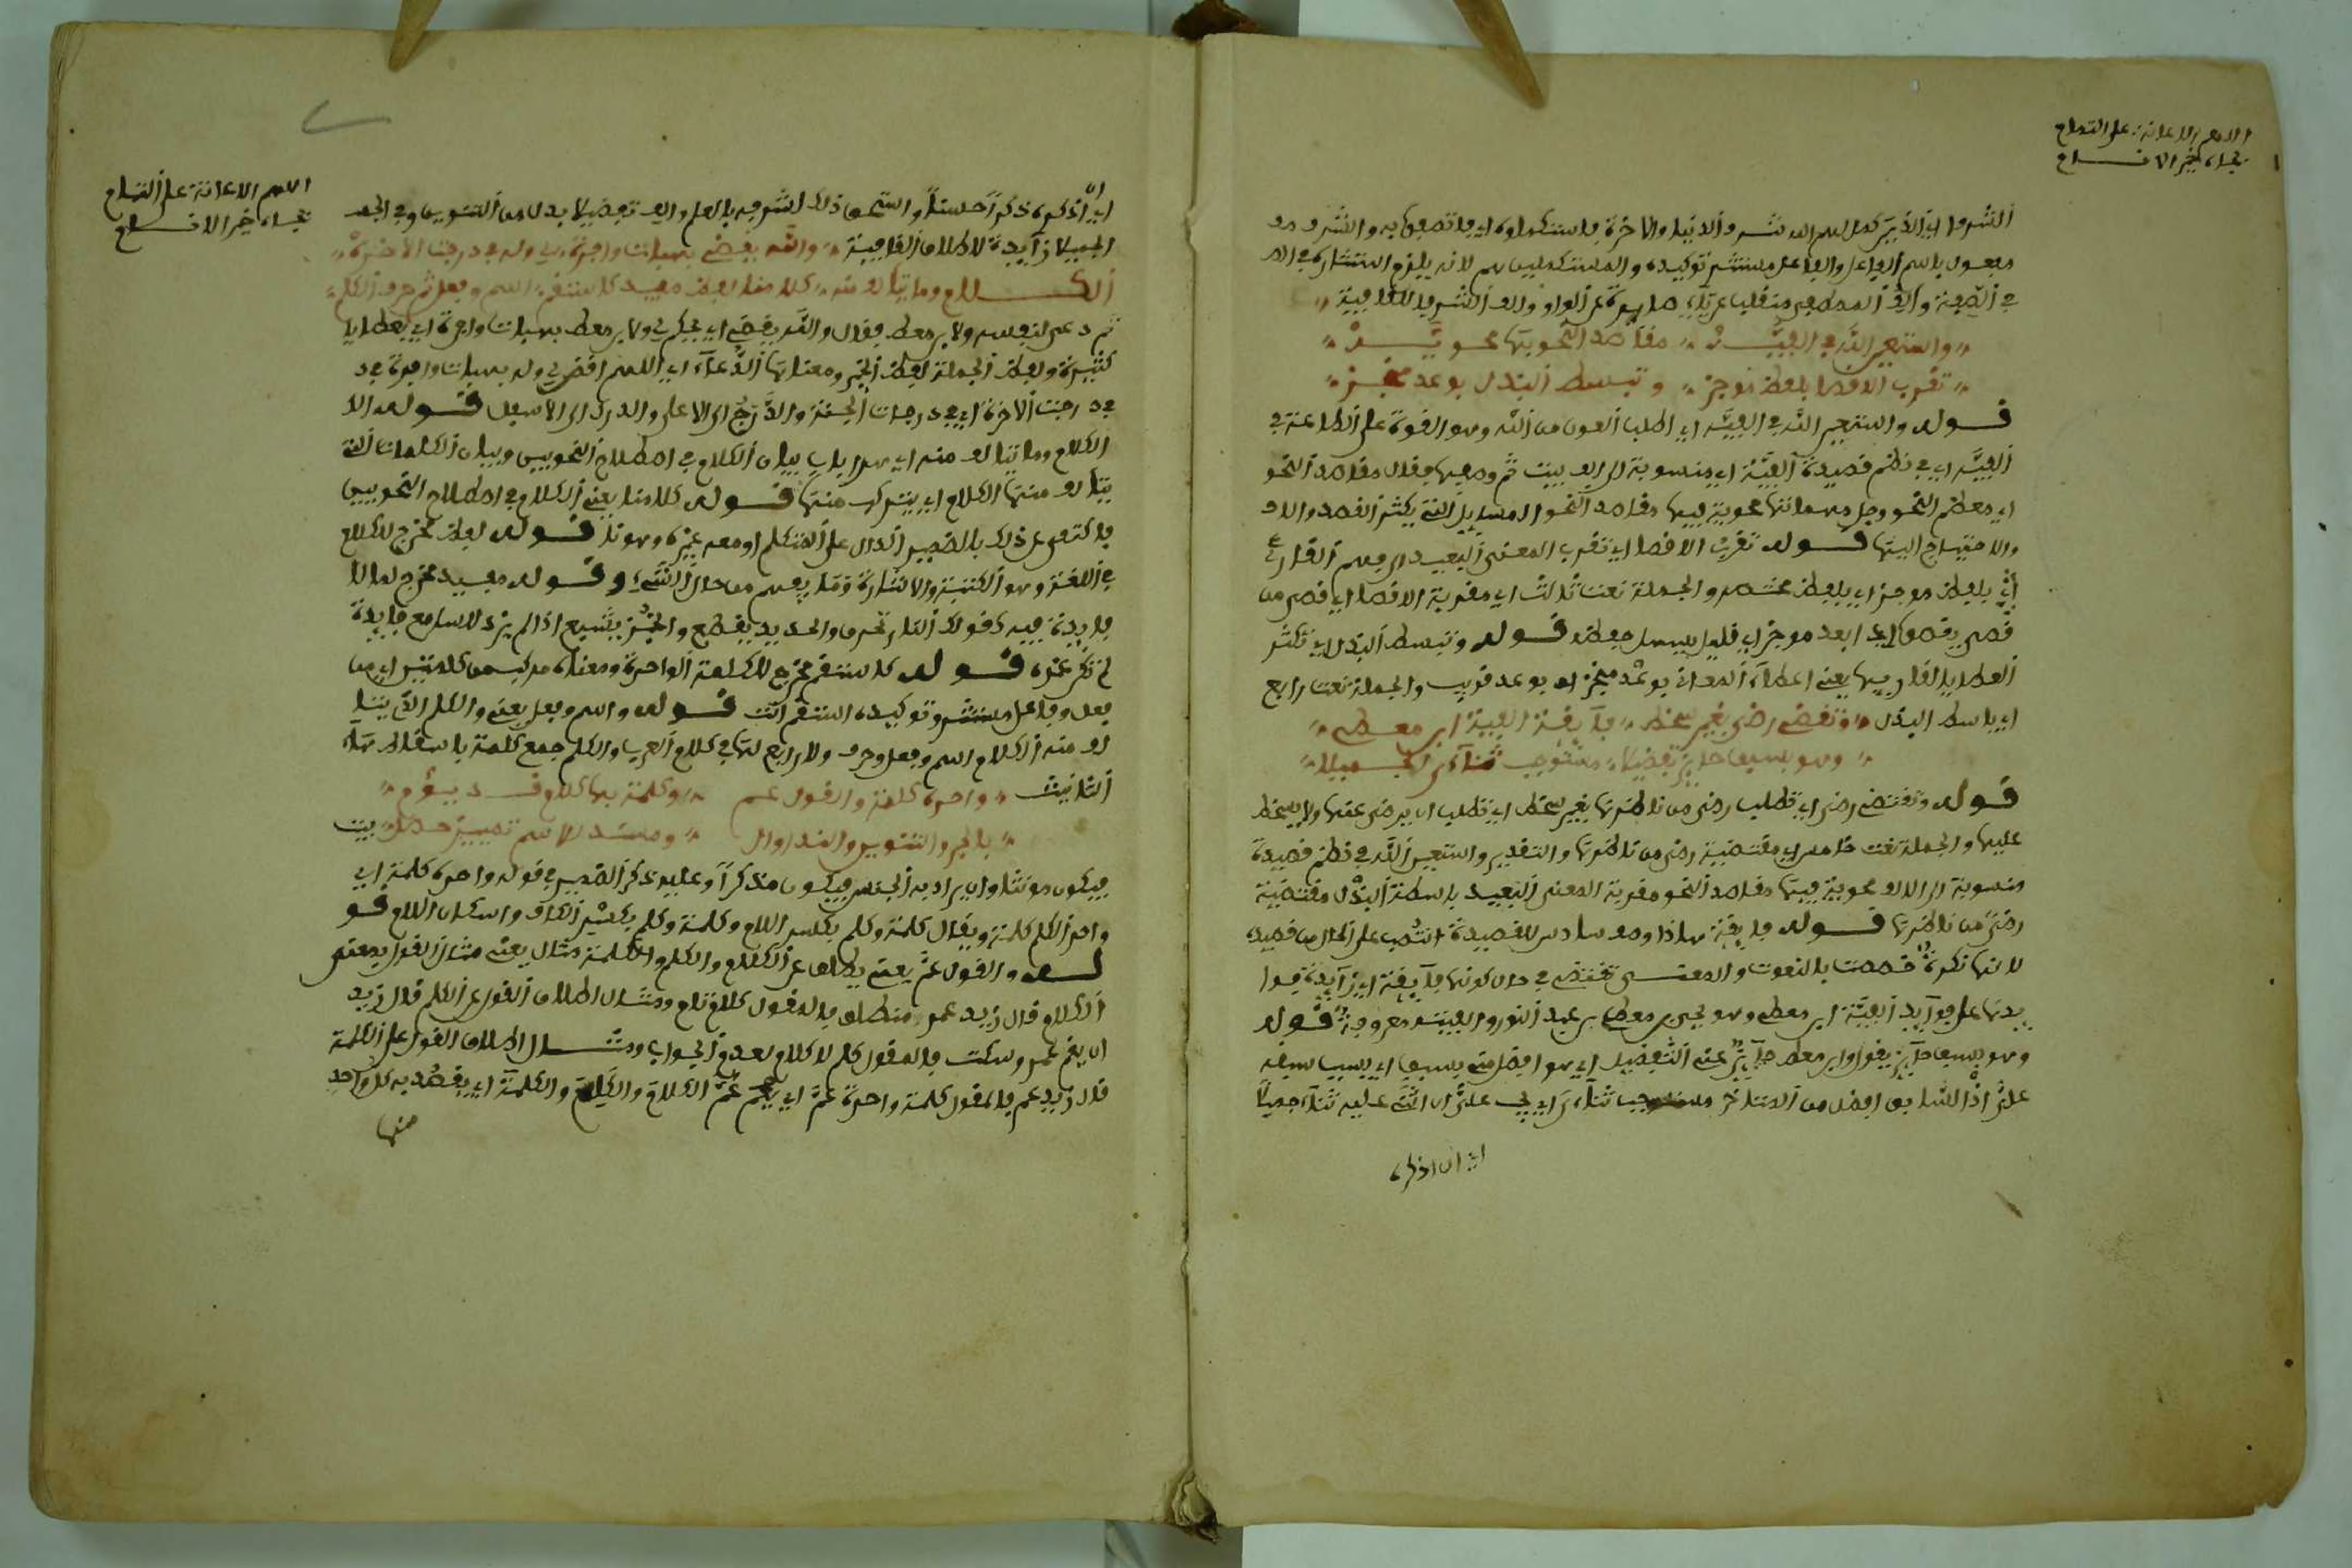 اللهم الاعانة على التمام
بجاه خير الانام
الشرفا اي الذين كمل لهم الله شرف الدنيا والاخرة
في الصفة والف المصطفى منقلب عن ياء والف الشرفا للقافية
واستعين الله في الفيه مقاصد النحو بها محويه
تقرب الاقصا بلفظ موجز وتبسط البذل بوعد منجز
قوله واستعين الله في الفيه اي اطلب العون من الله وهو القوة على الطاعة في
الفيه اي في نظم قصيدة الفية اي منسوبة الى الف بيت ثم وصفها فقال مقاصد النحو
اي معظم النحو وجل مهماتها محوية فيها مقاصد النحو المسايل التي يكثر القصد والا
والاحتياج اليها قوله تقرب الاقصا اي تقرب المعنى البعيد الى فهم القارئ
اي بلفظ موجز اي بلفظ مختصر والجملة نعت ثالث اي مقربة الاقصا اي قصي من
قصى يقصوا اي ابعد موجز اي قليل يسهل حفظه قوله وتبسط البذل اي تكثر
العطايا لقاريها يعني اعطاء المعاني بوعد منجز اي بوعد قريب والجملة نعت رابع
اي باسط البذل وتقتضي رضى بغير سخط فايقة الفية ابن معطي
وهو بسبق حايز تفضيلا مستوجب ثناءي الجميلا
قوله وتقتضي رضى اي تطلب رضى من ناظرها بغير سخط اي تطلب ان يرضى عنها ولا يسخط
عليها والجملة نعت خامس اي مقتضية رضى من ناظرها والتقدير واستعين الله في نظم قصيدة
منسوبة الى الالف محوية فيها مقاصد النحو مقربة المعنى البعيد باسطة البذل مقتضية
رضى من ناظرها قوله فايقة هاذا وهو سادس للقصيدة انتصب على الحال من قصيدة
لانها نكرة خصصت بالنعوت والمعنى تقتضي في حال كونها فايقة اي زايدة
يدتها على فوايد الفية ابن معطي وهو يحيى بن معطي بن عبد النور والفيته معروفة قوله
وهو بسبق حايز يقول ابن معطي حايز عني التفضيل اي هو افضل مني بسبق اي بسبب سبقه
علي اذ السابق افضل من المتاخر مستوجب ثناءي اي يجب علي ان اثني عليه ثناء جميلا
اي ان اذكره
اللهم الاعانة على التمام
بجاه خير الانام
اي ان اذكره ذكرا حسنا واستحق ذلك لشرفه بالعلم والف تفضيلا بدل من التنوين وفي الجمـ
الجميلا زايدة لاطلاق القافية والله يقضي بهبات وافرة لي وله في درجات الاخرة
الكلام وما يتالف منه كلامنا لفظ مفيد كاستقم اسم وفعل ثم حرف الكلم
ثم دعى لنفسه ولابن معط فقال والله يقضي اي يحكم لي ولابن معط بهبات وافرة اي بعطايا
كثيرة ولفظ الجملة لفظ الخبر ومعناها الدعاء اي اللهم اقض لي وله بهبات وافرة في د
في درجات الاخرة اي في درجات الجنة والدرج الى الاعلى والدرك الى الاسفل قوله الا
الكلام وما يتالف منه اي هذا باب بيان الكلام في اصطلاح النحويين وبيان الكلمات التي
يتالف منها الكلام اي يتركب منها قوله كلامنا يعني الكلام في اصطلاح النحويين
فاكتفى عن ذلك بالضمير الدال على المتكلم او معه غيره وهو نا قوله لفظ مخرج للكلام
في اللغة وهو الكتبة والاشارة وما يفهم من حال الشيء وقوله مفيد مخرج لما لا
فايدة فيه كقولك النار تحرق والحديد يقطع والخبز يشبع اذا لم يزد للسامع فايدة
لم تكن عنده قوله كاستقم مخرج للكلمة الواحدة ومعناه مركب من كلمتين اي من
فعل وفاعل مستتر وتوكيده استقم انت قوله واسم وفعل يعني والكلم الذي يتا
لف منه الكلام اسم وفعل وحرف ولا رابع لها في كلام العرب والكلم جمع كلمة باسقاط هاء
التانيث واحده كلمة والقول عم وكلمة بها كلام قد يؤم
بالجر والتنوين والندا وال ومسند للاسم تمييز حصل بيت
فيكون مونثا وان يراد به الجنس فيكون مذكرا وعليه ذكر الضمير في قوله واحده كلمة اي
واحد الكلم كلمة ويقال كلمة وكلم بكسر اللام وكلمة وكلم بكسر الكاف واسكان اللام قو
له والقول عم يعني يطلق على الكلام والكلم والكلمة مثال يعني مثال القول بمعنى
الكلام قال زيد عمر منطلق فالمقول كلام تام ومثال اطلاق القول على الكلم قال زيد
ان يقم عمر وسكت فالمقول كلم لا كلام لعدم الجواب ومثال اطلاق القول على الكلمة
قال زيد عم فالمقول كلمة واحدة عم اي يعم عم الكلام والكلم والكلمة اي يقصد به كل واحد
منها